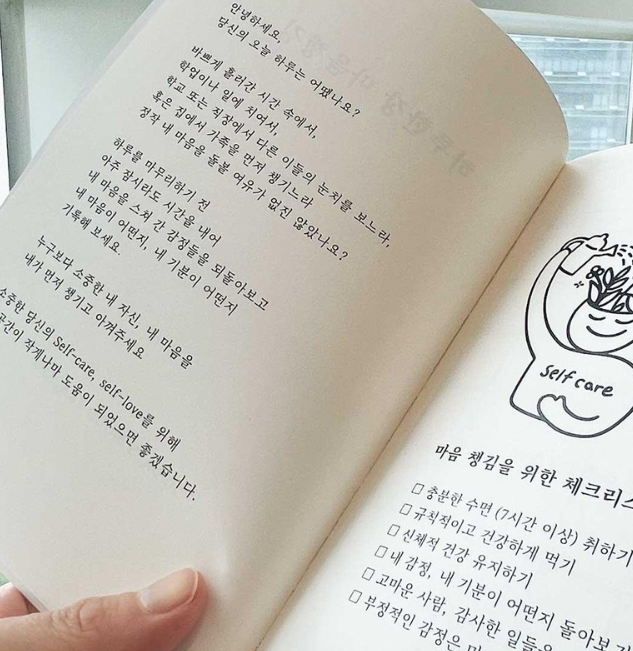 안녕하세요,
당신의 오늘 하루는 어땠나요?
바쁘게 흘러간 시간 속에서,
학업이나 일에 치여서,
학교 또는 직장에서 다른 이들의 눈치를 보느라,
혹은 집에서 가족을 먼저 챙기느라
정작 내 마음을 돌볼 여유가 없진 않았나요?
하루를 마무리하기 전
아주 잠시라도 시간을 내어
내 마음을 스쳐 간 감정들을 되돌아보고
내 마음이 어떤지, 내 기분이 어떤지
기록해 보세요.
누구보다 소중한 내 자신, 내 마음을
내가 먼저 챙기고 아껴주세요
소중한 당신의 Self-care, self-love를 위해
공간이 작게나마 도움이 되었으면 좋겠습니다.
self care
마음 챙김을 위한 체크리스
□ 충분한 수면 (7시간 이상) 취하기
□ 규칙적이고 건강하게 먹기
□ 신체적 건강 유지하기
□ 내 감정, 내 기분이 어떤지 돌아보기
□ 고마운 사람, 감사한 일들
□ 부정적인 감정은